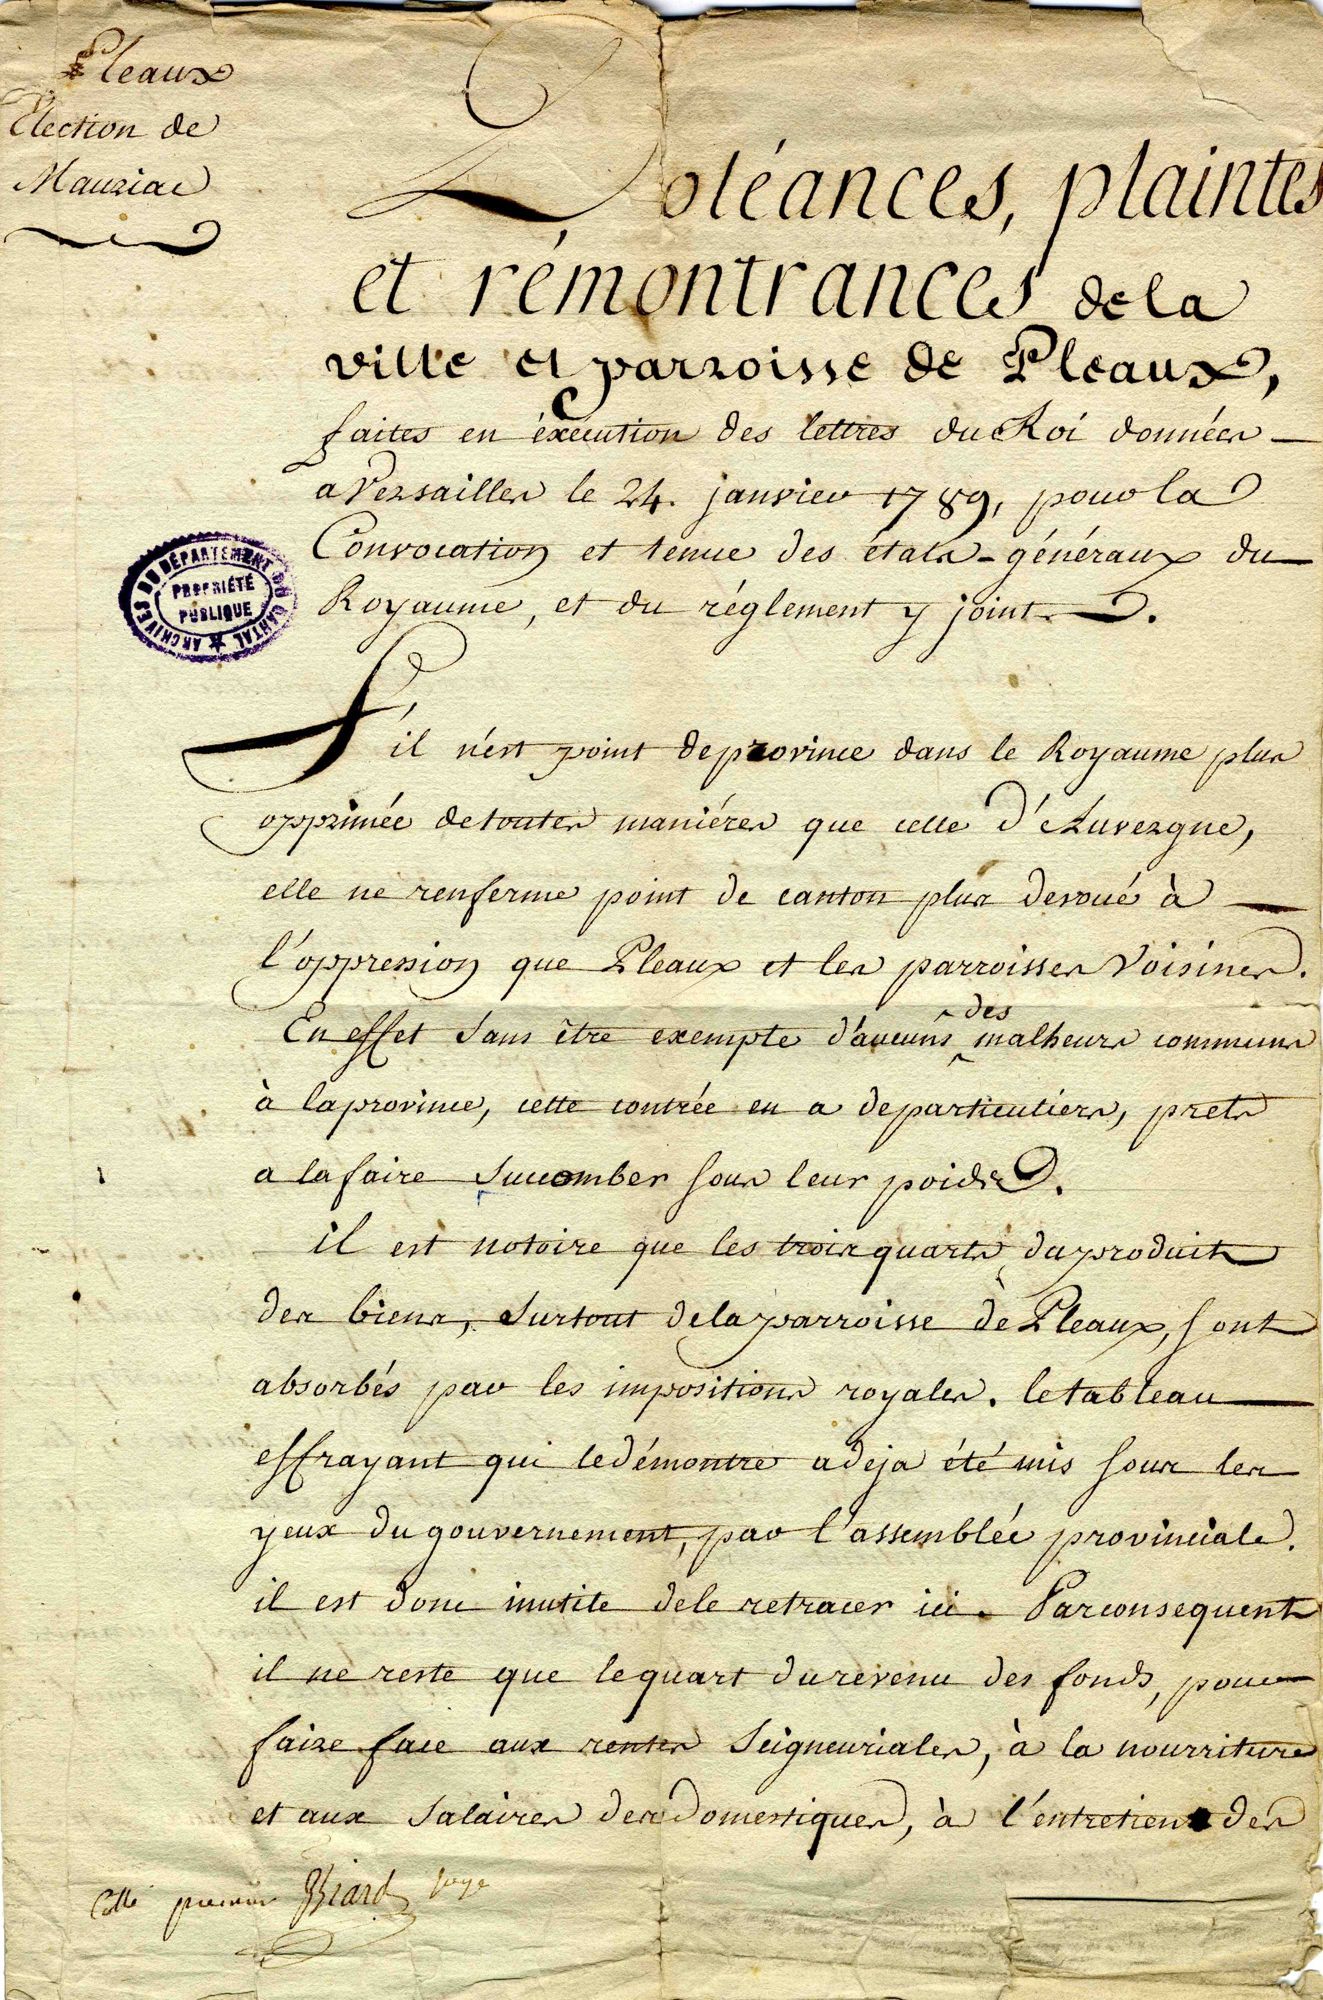 Pleaux
Élection de
Mauriac
Doléances, plaintes
et rémontrances de la
ville et parroisse de Pleaux,
faites en éxécution des lettres du Roi données
a Versailles le 24. janvier 1789, pour la
Convocation et tenue des états-généraux du
Royaume, et du réglement y joint.
ARCHIVES DU DÉPARTEMENT DU CANTAL
PROPRIÉTÉ
PUBLIQUE
S'il n'est point de province dans le Royaume plus
opprimée de toutes maniéres que celle d'Auvergne,
elle ne renferme point de canton plus devoué à
l'oppression que Pleaux et les parroisses Voisines.
En effet sans être exempte d'aucuns des malheurs communs
à la province, cette contrée en a de particuliers, prets
a la faire Succomber sous leur poids.
il est notoire que les trois quarts du produit
des biens, surtout de la parroisse de Pleaux, sont
absorbés par les impositions royales. le tableau
effrayant qui le démontre a deja été mis sous les
yeux du gouvernement, par l'assemblée provinciale.
il est donc inutile de le retracer ici. Par consequent
il ne reste que le quart du revenu des fonds, pour
faire face aux rentes Seigneuriales, à la nourriture
et aux Salaires des domestiques, à l'entretien des
Cotté premier Biard juge